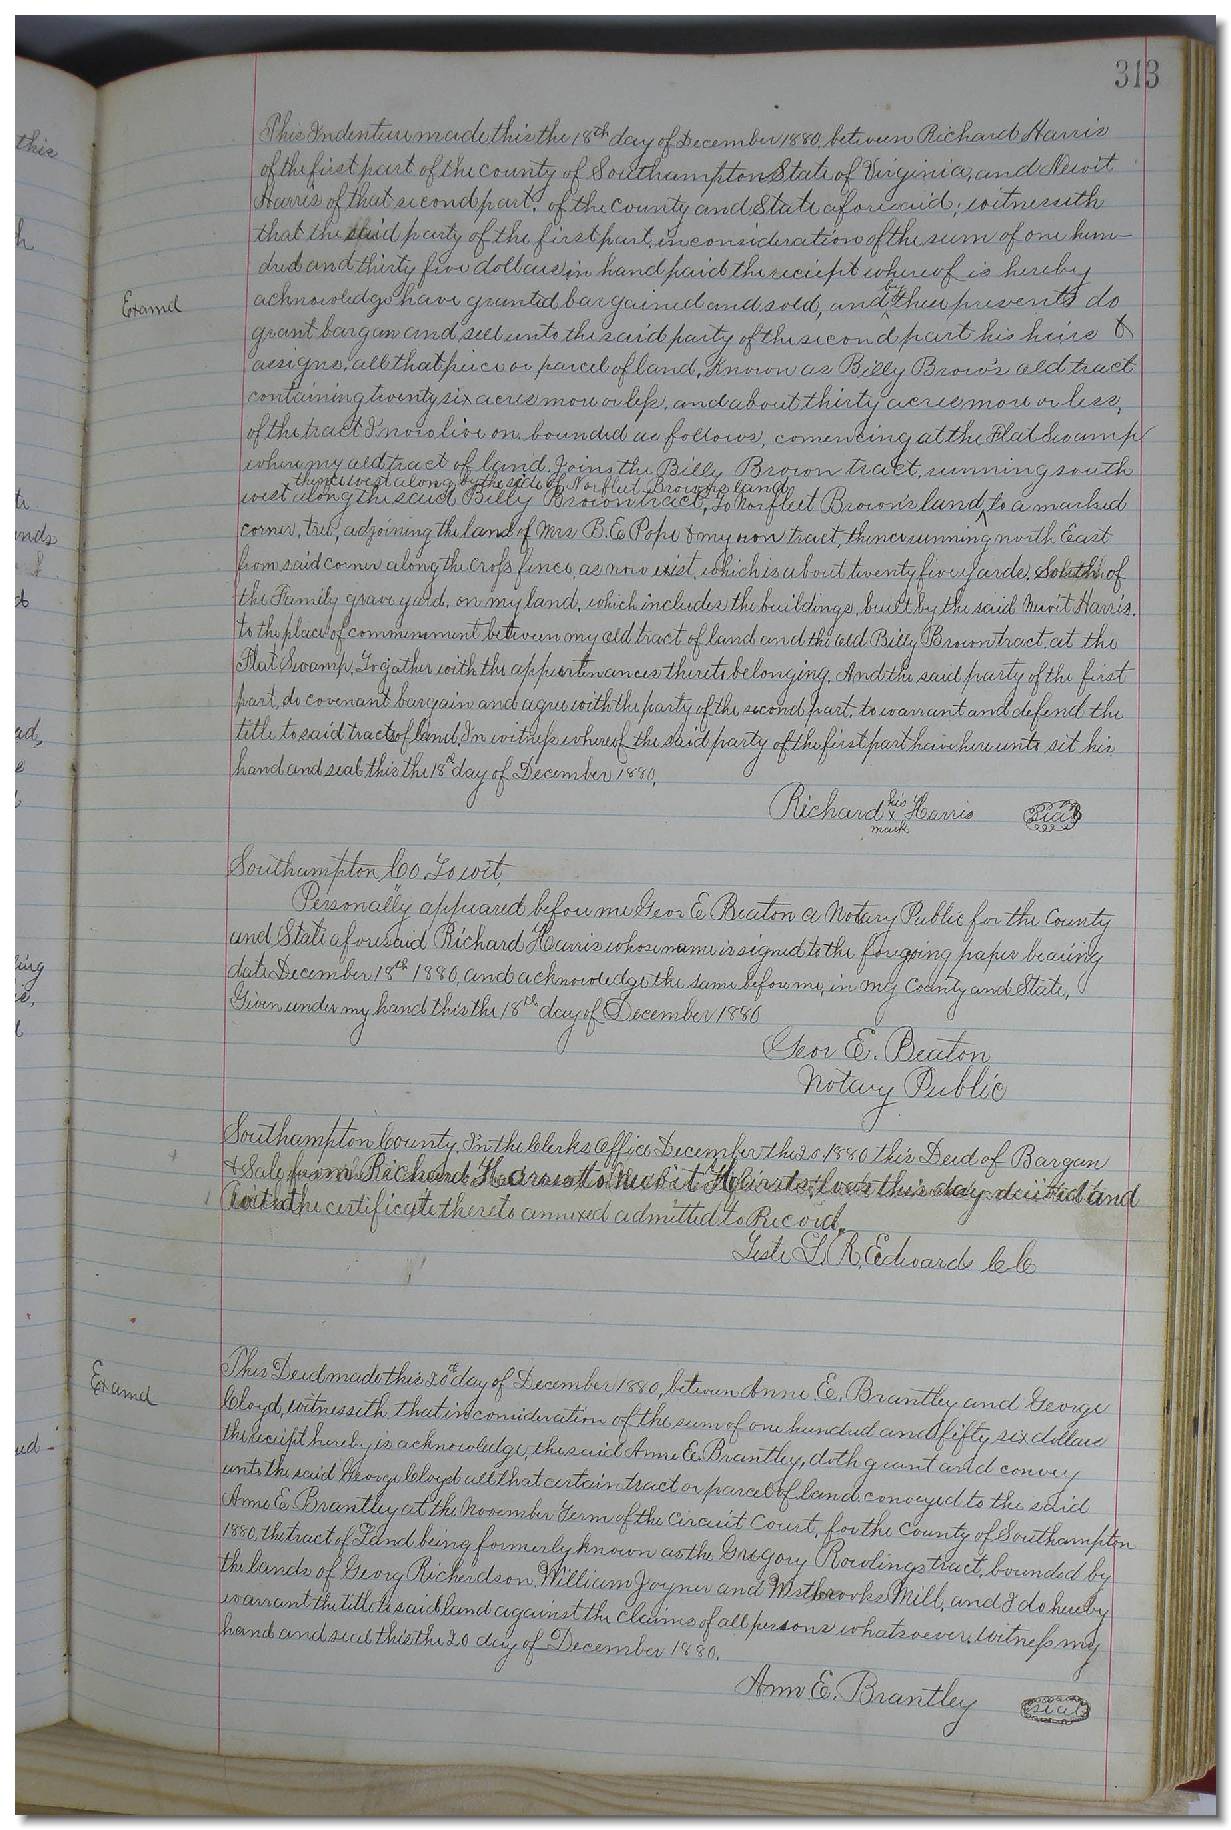 313
This Indenture made this the 18th day of December 1880, between Richard Harris
of the first part of the county of Southampton State of Virginia, and Newit
Harris of that second part. of the county and State aforesaid; witnesseth
that the said party of the first part, in consideration of the sum of one hun-
dred and thirty five dollars in hand paid the reciept whereof is hereby
Examd
acknowledge have granted bargained and sold, and by these presents do
grant bargan and sell unto the said party of the second part his heirs &
assigns, all that peice or parcel of land, Known as Billy Brow's old tract
containing twenty six acres more or less, and about thirty acres more or less,
of the tract I now live on bounded as follows, comencing at the Flat Swamp
where my old tract of land Joins the Billy Brown tract, running south
thence west along by the side of Norfleet Brown's land
west along the said Billy Brown tract, to Norfleet Brown's land, to a marked
corner, tree, adjoining the land of Mrs B. E. Pope & my own tract, thence running north East
from said corner along the cross fence, as now exist, which is about twenty five yards, South of
the Family grave yard, on my land, which includes the buildings, built by the said Newit Harris.
to the place of commenment between my old tract of land and the old Billy Brown tract at the
Flat Swamp, Togather with the appertenances thereto belonging. And the said party of the first
part, do covenant bargain and agree with the party of the second part, to warrant and defend the
title to said tracts of land. In witness whereof the said party of the first part have hereunto set his
hand and seal this the 18th day of December 1880,
Richard his x mark Harris seal
Southampton Co, To wit,
Personally appeared before me Geor E. Beaton a Notary Public for the County
and State aforesaid Richard Harris whose name is signed to the foregoing paper bearing
date December 18th 1880, and acknowledge the same before me, in my County and State,
Given under my hand this the 18th day of December 1880
Geor E. Beaton
Notary Public
Southampton County, In the Clerks Office December the 20 1880 this Deed of Bargan
& Sale from Richard Harris to Newit Harris, was this day and
with the certificate thereto annexed admitted to Record,
Teste L. R. Edwards CC
Examd
This Deed made this 20th day of December 1880, between Anne E. Brantley and George
Cloyd, witnesseth that in consideration of the sum of one hundred and fifty six dollars
the reciept hereby is acknowledge, the said Anne E. Brantley, doth grant and convey
unto the said George Cloyd all that certain tract or parcel of land conveyed to the said
Anne E. Brantley at the November Term of the Circuit Court, for the County of Southampton
1880, the tract of Land being formerly known as the Gregory Rowlings tract, bounded by
the lands of Georg Richerdson, William Joyner and Westbrooks Mill, and I do hereby
warrant the title to said land against the claims of all persons whatsoever. Witness my
hand and seal this the 20 day of December 1880.
Ann E. Brantley seal